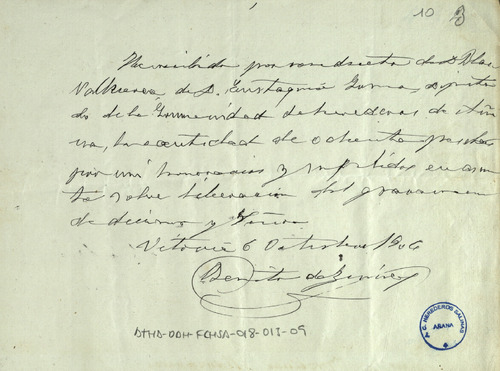 10 3
He recibido por conducto de D. Blas
Valluerca de D. Eustaquio Goma, diputa
do de la Comunidad de herederos de Aña
na, la cantidad de ochenta pesetas
por mi honorarios y suplidos en asun
to sobre liberación del gravamen
de diezmo y
Vitoria 6 Octubre 1906
Benito de
ATHA-DAH-FCHSA-018-013-09
C. HEREDEROS SALINAS
AÑANA